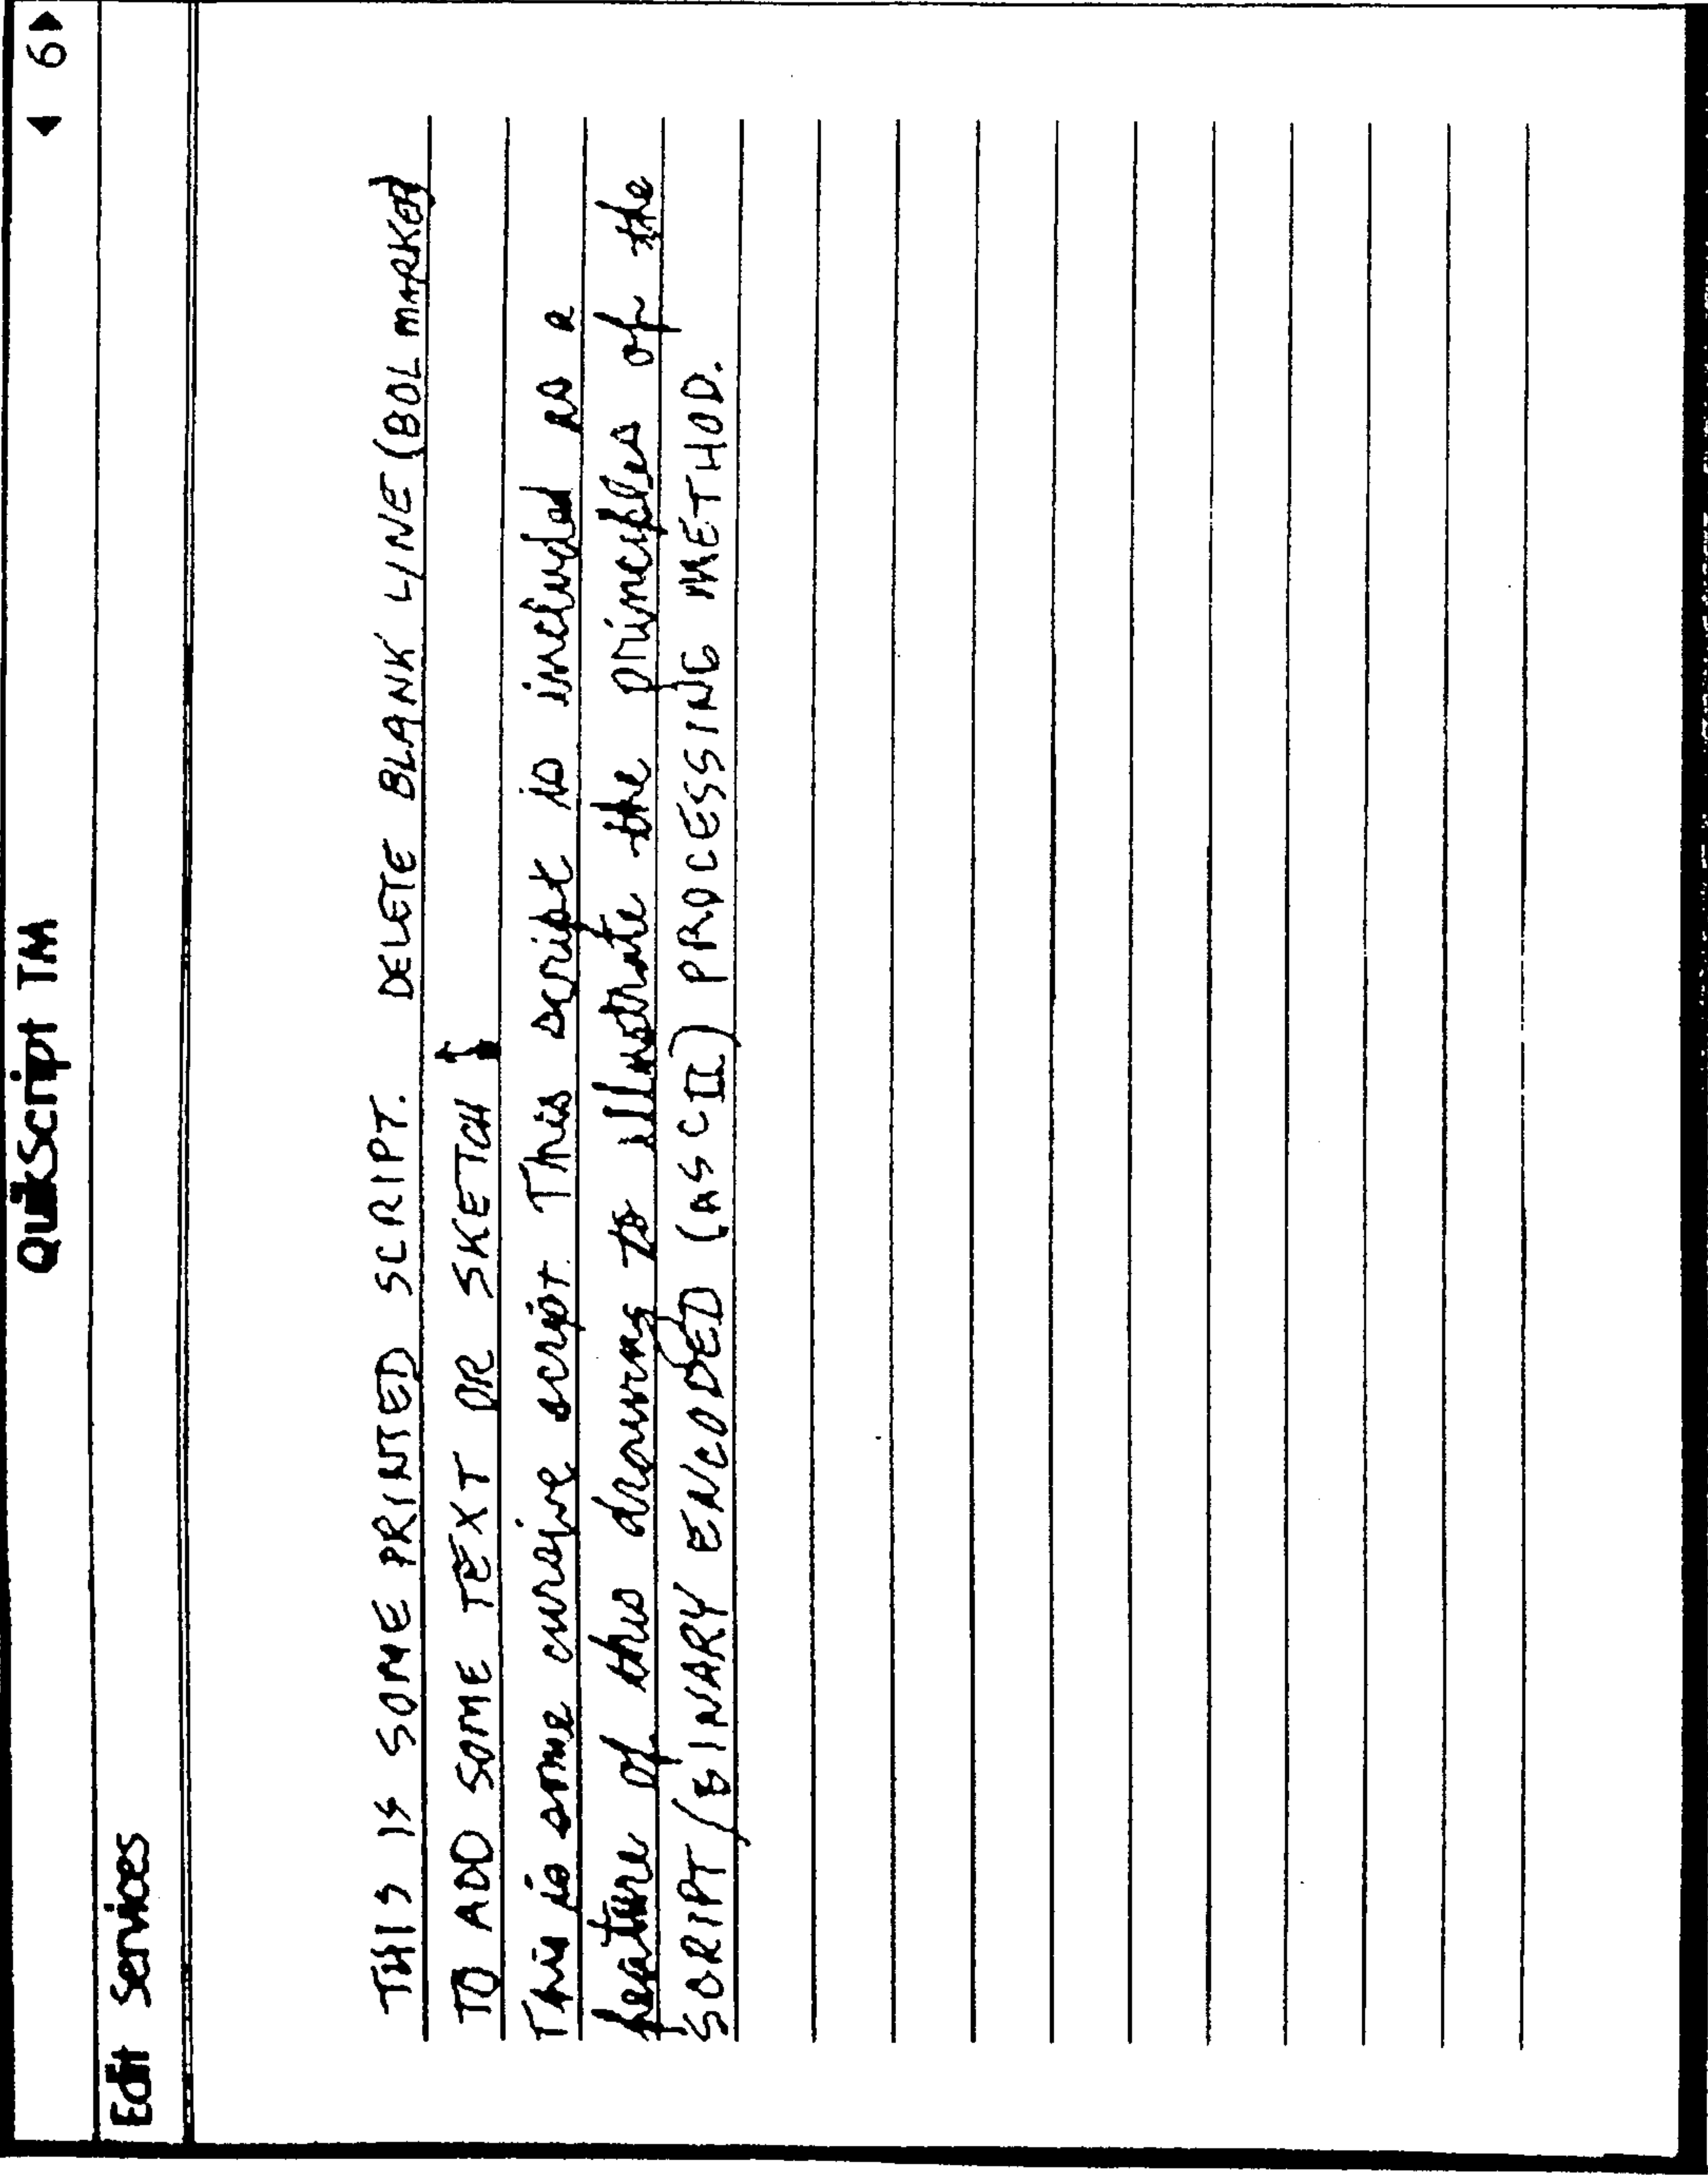 QuikScript TM ◀ 6 ▶
Edit Services
THIS IS SOME PRINTED SCRIPT. DELETE BLANK LINE (BOL MARKER)
TO ADD SOME TEXT OR SKETCH
This is some cursive script. This script is included as a
feature of this drawing to illustrate the principles of the
SCRIPT/BINARY ENCODED (ASCII) PROCESSING METHOD.